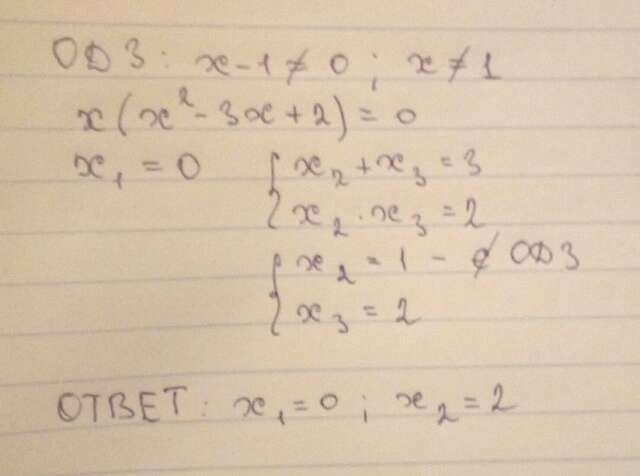 ОДЗ: x-1≠0; x≠1
x(x²-3x+2)=0
x₁=0 { x₂+x₃=3
x₂·x₃=2
{ x₂=1 - ∉ ОДЗ
x₃=2
ОТВЕТ: x₁=0; x₂=2